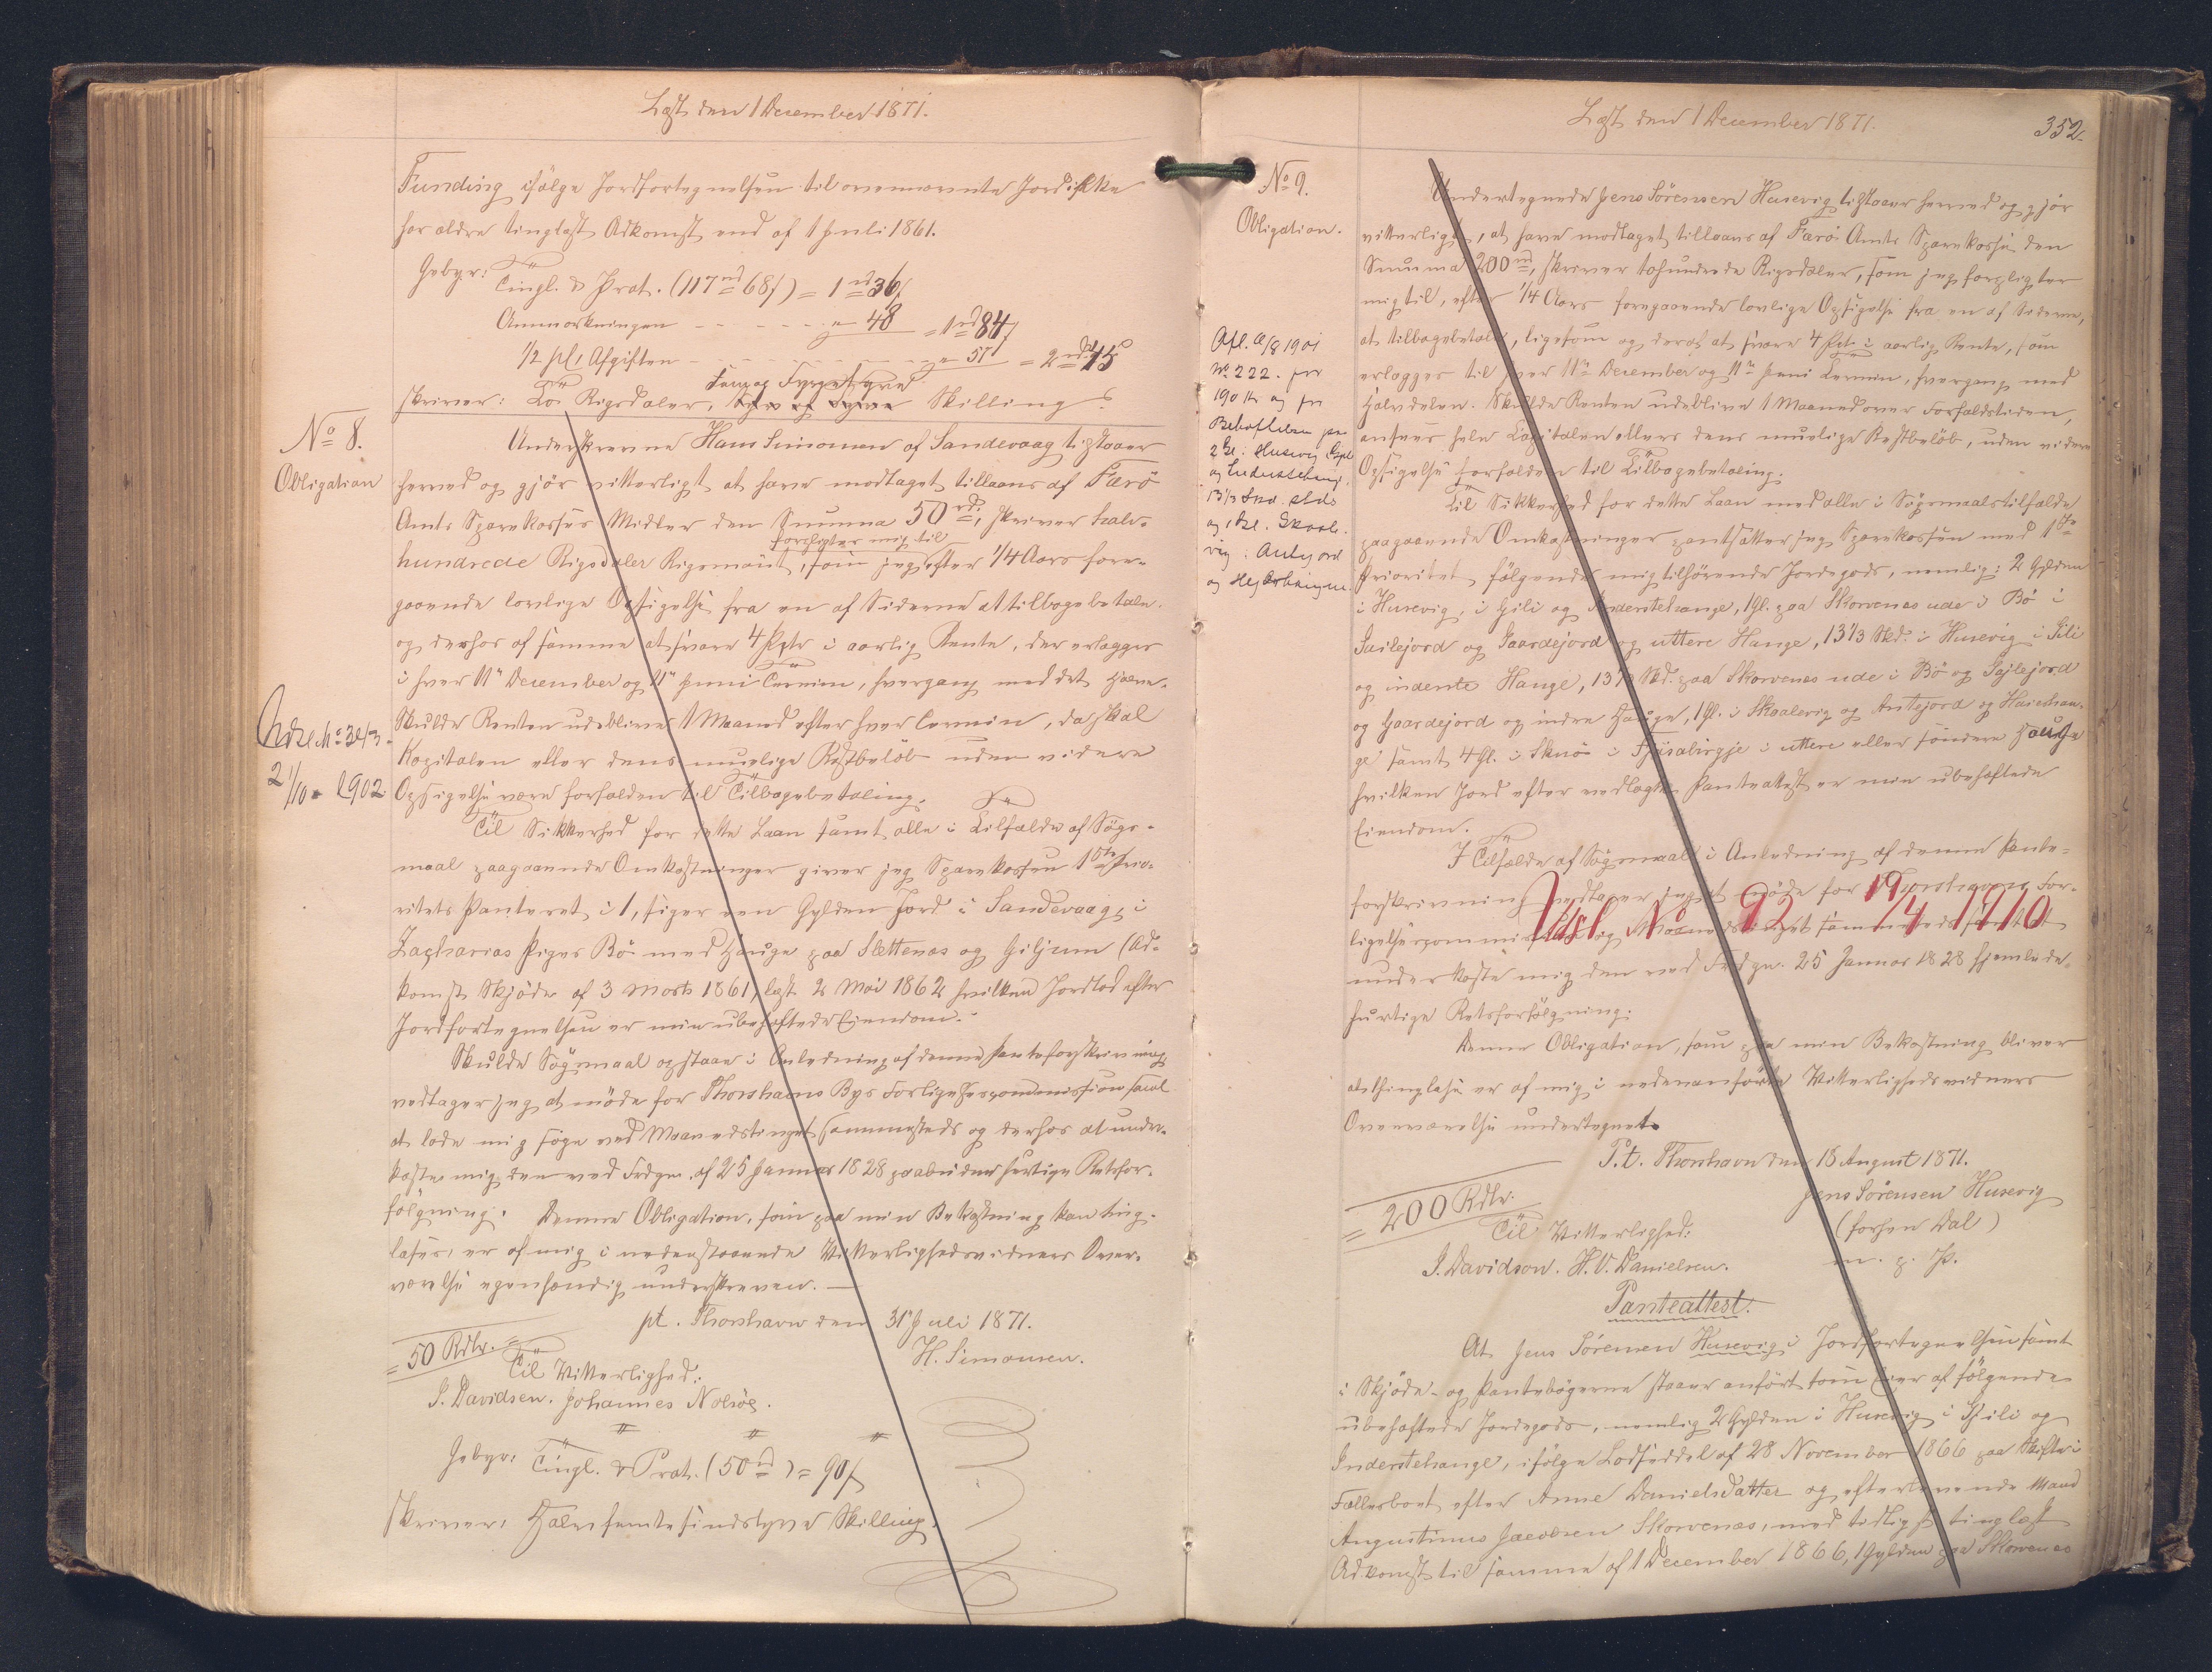 Læst den 1 December 1871.
Funding ifølge Jordfortegnelsen til ovennævnte Jord ikke
har ældre tinglæst Adkomst end af 1 Juli 1861.
Gebyr: Tingl. & Prot. (117 rd 68 s) = 1 rd 36 s
Anmærkningen - - - - - " 48 = 1 rd 84 s
1/2 pCt Afgiften - - - - - - = 2 rd
skriver: To Rigsdaler, Skilling
No 8.
Obligation
Underskrevne Hans Simonsen af Sandevaag tilstaaer
herved og gjør vitterligt at have modtaget tillaans af Færö
Amts Sparekasses Midler den Summa 50 rd, skriver halv-
hundrede Rigsdaler Rigsmönt, som jeg forpligter mig til efter 1/4 Aars fore-
gaaende lovlige Opsigelse fra en af Siderne at tilbagebetale
og derhos af samme at svare 4 pCt i aarlig Rente, der erlægges
i hver 11te December og 11te Juni Termin, hvergang med det Halve.
Skulde Renten udeblive 1 Maaned efter hver Termin, da skal
Kapitalen eller dens muelige Restbelöb uden videre
Opsigelse være forfalden til Tilbagebetaling.
Udsl. No 32/3
21/10 1902.
Til Sikkerhed for dette Laan samt alle i Tilfælde af Søgs-
maal paagaaende Omkostninger giver jeg Sparekassen 1ste Prio-
ritets Panteret i 1, siger een Gylden Jord i Sandevaag, i
Zacharias Piges Bö med Hauge paa Slettenæs og Giljum (Ad-
komst Skjøde af 3 Marts 1861, læst 2 Mai 1862 hvilken Jordlod efter
Jordfortegnelsen er min ubehæftede Eiendom.
Skulde Søgsmaal opstaae i Anledning af denne Panteforskrivning
vedtager jeg at møde for Thorshavns Byes Forligelsescommission samt
at lade mig søge ved Maanedstinget sammesteds og derhos at under-
kaste mig den ved Frdgn. af 25 Januar 1828 paabudne hurtige Retsfor-
følgning. Denne Obligation, som paa min Bekostning kan ting-
læses, er af mig i nedenstaaende Vitterlighedsvidners Over-
værelse egenhændig underskreven. —
pt. Thorshavn den 31 Juli 1871.
H. Simonsen.
= 50 Rdlr. =
Til Vitterlighed:
S. Davidsen. Johannes Nolsöe.
Gebyr: Tingl. & Prot. (50 rd) = 90 s
skriver: Halvfemtesindstyve Skilling.
Læst den 1 December 1871.
352
No 9.
Obligation.
Undertegnede Jens Sörensen Husevig tilstaaer herved og gjör
vitterligt, at have modtaget tillaans af Færö Amts Sparekasse den
Summa 200 rd, skriver tohundrede Rigsdaler, som jeg forpligter
mig til, efter 1/4 Aars foregaaende lovlige Opsigelse fra en af Siderne,
at tilbagebetale, ligesom og deraf at svare 4 pCt i aarlig Rente, som
erlægges til hver 11te December og 11te Juni Termin, hvergang med
Halvdelen. Skulde Renten udeblive 1 Maaned over Forfaldstiden,
ansees hele Capitalen ellers dens muelige Restbelöb, uden videre
Opsigelse forfalden til Tilbagebetaling.
Afl. 8 1901
No. 222. for
190 Kr og for
Behæftelsen paa
2 Gl. Husevig
13 1/3
og 1 Gl. Skaale-
vig: Antejord
og
Til Sikkerhed for dette Laan med alle i Søgsmaalstilfælde
paagaaende Omkostninger pantsætter jeg Sparekassen med 1ste
Prioritet følgende mig tilhörende Jordegods, nemlig: 2 Gylden
i Husevig, i Gili og Inderstehauge, 1 Gl. paa Skorvenæs ude i Bö i
Suilejord og Gaardejord og uttere Hauge, 13 1/3 Skd. i Husevig i Gili
og inderste Hauge, 13 1/3 Skd. paa Skorvenæs ude i Bö og Sujlejord
og Gaardejord og indre Hauge, 1 Gl. i Skaalevig og Antejord og
ge samt 4 Gl. i Skuö i i uttere eller söndere Hauge
hvilken Jord efter vedlagte Panteattest er min ubehæftede
Eiendom.
I Tilfælde af Søgsmaal i Anledning af denne Pante-
forskrivning vedtager jeg at møde for Thorshavns For-
ligelsescommission og Maanedstinget sammesteds samt at
underkaste mig den ved Frdgn. 25 Januar 1828 hjemlede
hurtige Retsforfølgning.
Udsl. No 92 19/4 1910
Denne Obligation, som paa min Bekostning bliver
at thinglæse er af mig i nedenanførte Vitterlighedsvidners
Overværelse undertegnet.
P.t. Thorshavn den 18 August 1871.
Jens Sörensen Husevig
(forhen Dal)
m. p. P.
= 200 Rdlr.
Til Vitterlighed:
S. Davidson. H. V. Danielsen.
Panteattest.
At Jens Sörensen Husevig i Jordfortegnelsen samt
i Skjøde- og Pantebøgerne staaer anført som Eier af følgende
ubehæftede Jordegods, nemlig 2 Gylden i Husevig i Gili og
Inderstehauge, ifølge Lodseddel af 28 November 1866 paa Skifte i
Fællesboet efter Anne Danielsdatter og efterlevende Mand
Augustinus Jacobsen Skorvenæs, med tidligst tinglæst
Adkomst til samme af 1 December 1866, 1 Gylden paa Skorvenæs